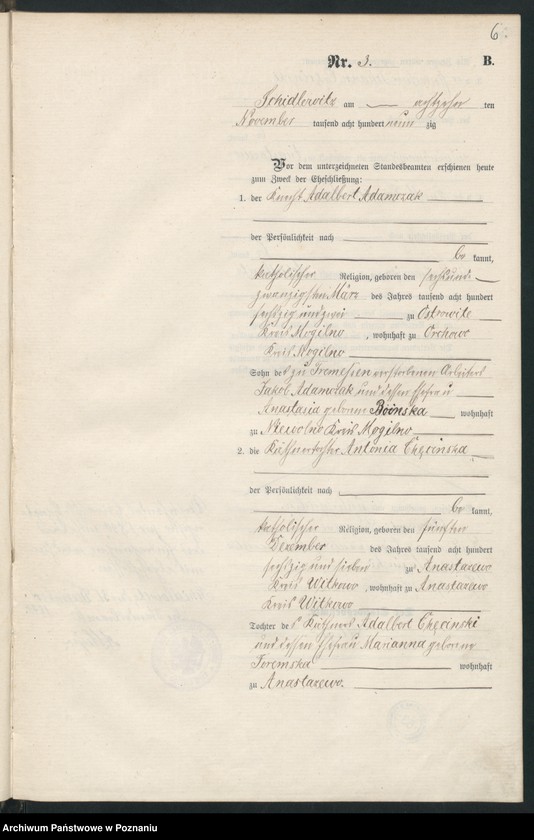 6
Nr. 3. B.
Schidlowitz am achtzehn ten
November tausend acht hundert neun zig
Vor dem unterzeichneten Standesbeamten erschienen heute
zum Zweck der Eheschließung:
1. der Knecht Adalbert Adamczak
der Persönlichkeit nach
be kannt,
katholischer Religion, geboren den sechsund-
zwanzigsten März des Jahres tausend acht hundert
sechzig und zwei zu Ostrowite
Kreis Mogilno, wohnhaft zu Orchowo
Kreis Mogilno
Sohn des zu Tremessen verstorbenen Arbeiters
Jakob Adamczak und dessen Ehefrau
Anastasia geborene wohnhaft
zu Niewolno Kreis Mogilno
2. die Käthnertochter Antonia Chęcinska
der Persönlichkeit nach
be kannt,
katholischer Religion, geboren den fünften
Dezember des Jahres tausend acht hundert
sechzig und sieben zu Anastazewo
Kreis Witkowo, wohnhaft zu Anastazewo
Kreis Witkowo
Tochter des Käthners Adalbert Chęcinski
und dessen Ehefrau Marianna geborene
Toremska wohnhaft
zu Anastazewo.
Archiwum Państwowe w Poznaniu